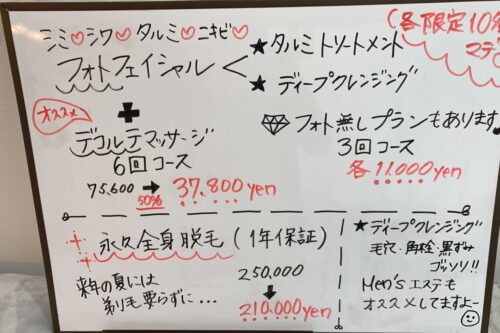 シミ♡シワ♡タルミ♡ニキビ♡
(各限定10名
マデ
フォトフェイシャル <
★タルミトリートメント
★ディープクレンジング
オススメ
+
デコルテマッサージ
6回コース
75,600 → 37,800yen
50%
フォト無しプランもあります。
3回コース
各11,000yen
永久全身脱毛(1年保証)
来年の夏には
剃り毛要らずに・・・
250,000
↓
210,000yen
★ディープクレンジング
毛穴・角栓・黒ずみ
ゴッソリ!!
Men'sエステも
オススメしてますよー